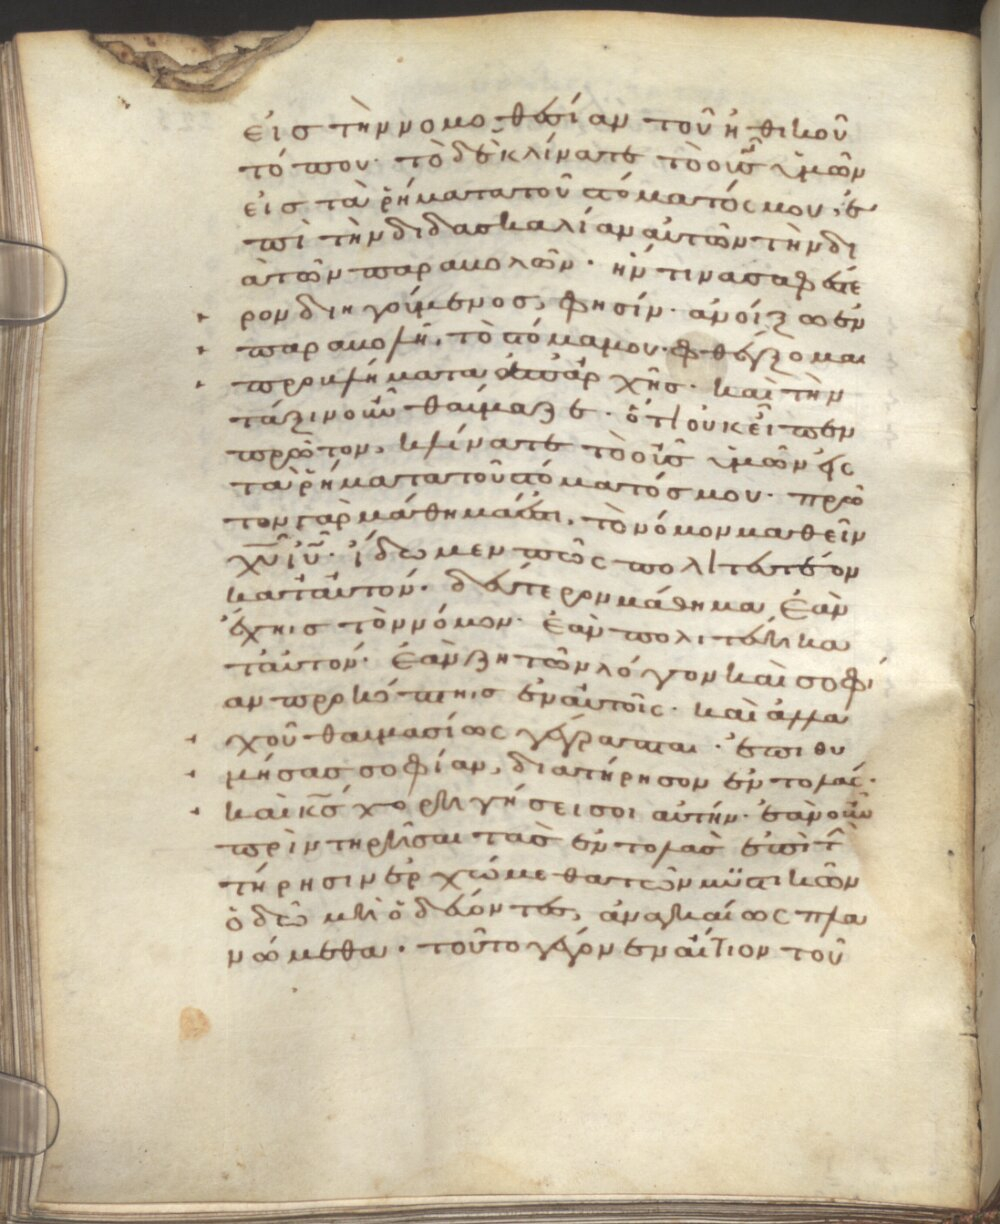 εἰς τὴν νομοθεσίαν τοῦ ἠθικοῦ
τόπου· τὸ δὲ κλίνατε τὸ οὖς ὑμῶν
εἰς τὰ ῥήματα τοῦ στόματός μου, ἐ
πὶ τὴν διδασκαλίαν αὐτῶν τὴν δι
ὰ τῶν παραβολῶν· ἥν τινα σαφέστε
ρον διηγούμενος, φησίν· ἀνοίξω ἐν
παραβολῇ, τὸ στόμα μου· φθέγξομαι
προβλήματα ἀπαρχῆς· καὶ τὴν
τάξιν οὖν θαύμαζε· ὅτι οὐκ εἶπεν
πρῶτον, κλίνατε τὸ οὖς ὑμῶν εἰς
τὰ ῥήματα τοῦ στόματός μου· πρῶ
τον γὰρ μάθημά ἐστι, τὸν νόμον μαθεῖν
χῦ ἰῦ· ἴδωμεν πῶς πολιτευτέον
κατ αὐτόν· δεύτερον μάθημα ἐὰν
ἔχῃς τὸν νόμον· ἐὰν πολιτεύῃ κα
τ αὐτόν· ἐὰν ζητῶν λόγον καὶ σοφί
αν προκόπτῃς ἐν αὐτοῖς· καὶ ἀλλα
χοῦ θαυμασίως γέγραπται· ἐπιθυ
μήσας σοφίαν, διατήρησον ἐντολάς·
καὶ κς χορηγήσει σοι αὐτήν· ἐὰν οὖν
πρὶν τηρῆσαι τὰς ἐντολὰς ἐπὶ τ
τήρησιν ἐρχώμεθα τῶν μυστικῶν
ὁδῶ μὴ ὁδεύοντες, ἀναγκαίως πλα
νώμεθα· τοῦτο γέγονεν αἴτιον τοῦ